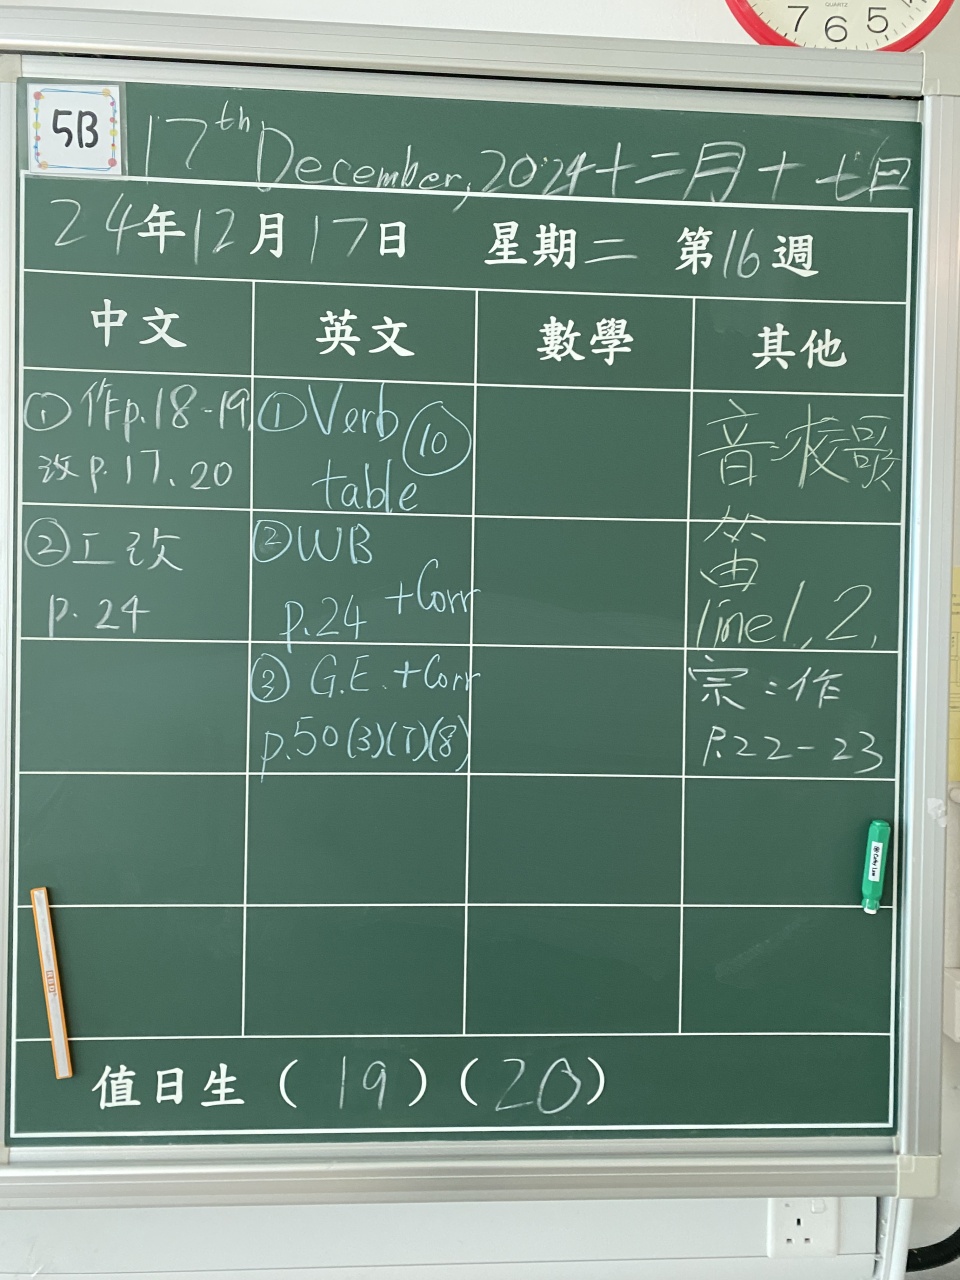 7 6 5
QUARTZ
5B
17th December, 2024 十二月十七日
24年12月17日 星期二 第16週
中文 英文 數學 其他
① 作p.18-19
改p.17、20
① Verb ⑩
table
音:校歌
② 工改
p.24
② WB
p.24 +Corr
line 1, 2,
③ G.E. +Corr
p.50(3)(7)(8)
宗:作
P.22-23
值日生 (19)(20)